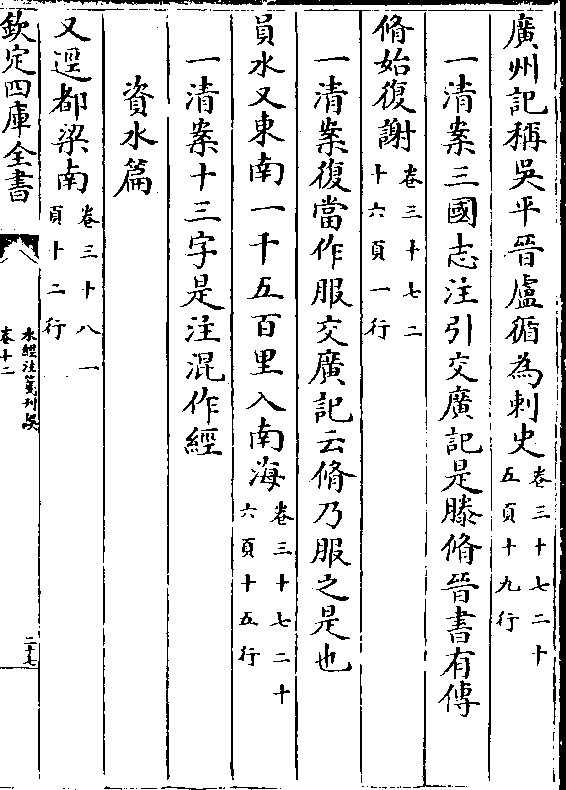 廣州記稱吳平晉盧循為刺史卷三十七二十五頁十九行
一清案三國志注引交廣記是滕脩晉書有傳
脩始復謝卷三十七二十六頁一行
一清案復當作服交廣記云脩乃服之是也
員水又東南一千五百里入南海卷三十七二十六頁十五行
一清案十三字是注混作經
資水篇
又逕都梁南卷三十八一頁十二行
欽定四庫全書
水經注箋刊誤
卷十二
二十七